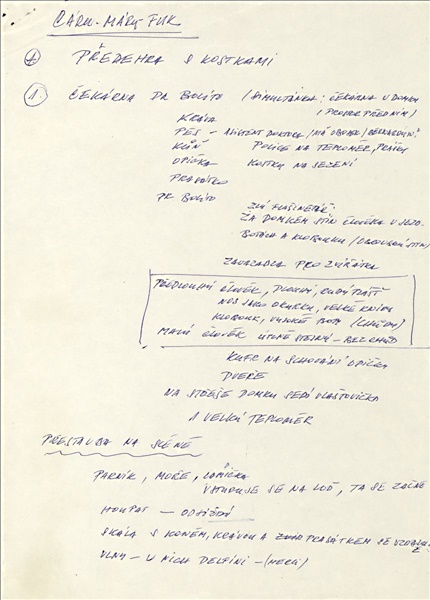 ČÁRY-MÁRY FUK
PŘEDEHRA S KOSTKAMI
1. ČEKÁRNA DR BOLITO / SIMULTÁNKA: ČEKÁRNA U DOMKU
/ PROSTOR PŘEDNÍM /
KRÁVA
PES - ASISTENT DOKTORA / MÁ OBOJEK /
KŮŇ POLICE NA TEPLOMĚR, PRÁŠKY
OPIČKA KOSTKY NA SEZENÍ
PRASÁTKO
DR BOLITO
ZLÝ FLAŠINETÁŘ:
ZA DOMKEM STÍN ČLOVĚKA V JEZD.
BOTÁCH A KLOBOUKU
ZAVAZADLA PRO ZVÍŘÁTKA
PŘEDLOUHÝ ČLOVĚK, DLOUHÝ, RUDÝ PLÁŠŤ
NOS JAKO OKURKU, VELKÉ KNÍRY
KLOBOUK, VYSOKÉ BOTY (CHŮDY)
MALÝ ČLOVĚK ÚPLNĚ STEJNÝ - BEZ CHŮD
KUFR NA SCHOVÁNÍ OPIČKY
DVEŘE
NA STŘEŠE DOMKU SEDÍ VLAŠTOVIČKA
1 VELKÝ TEPLOMĚR
PŘESTAVBA NA SCÉNĚ
PARNÍK, MOŘE, LODIČKA
VSTUPUJE SE NA LOĎ, TA SE ZAČNE
HOUPAT - ODJÍŽDÍ
SKÁLA S KONĚM, KRÁVOU A PRASÁTKEM SE VZDALUJE
VLNY - V NICH DELFÍNI -